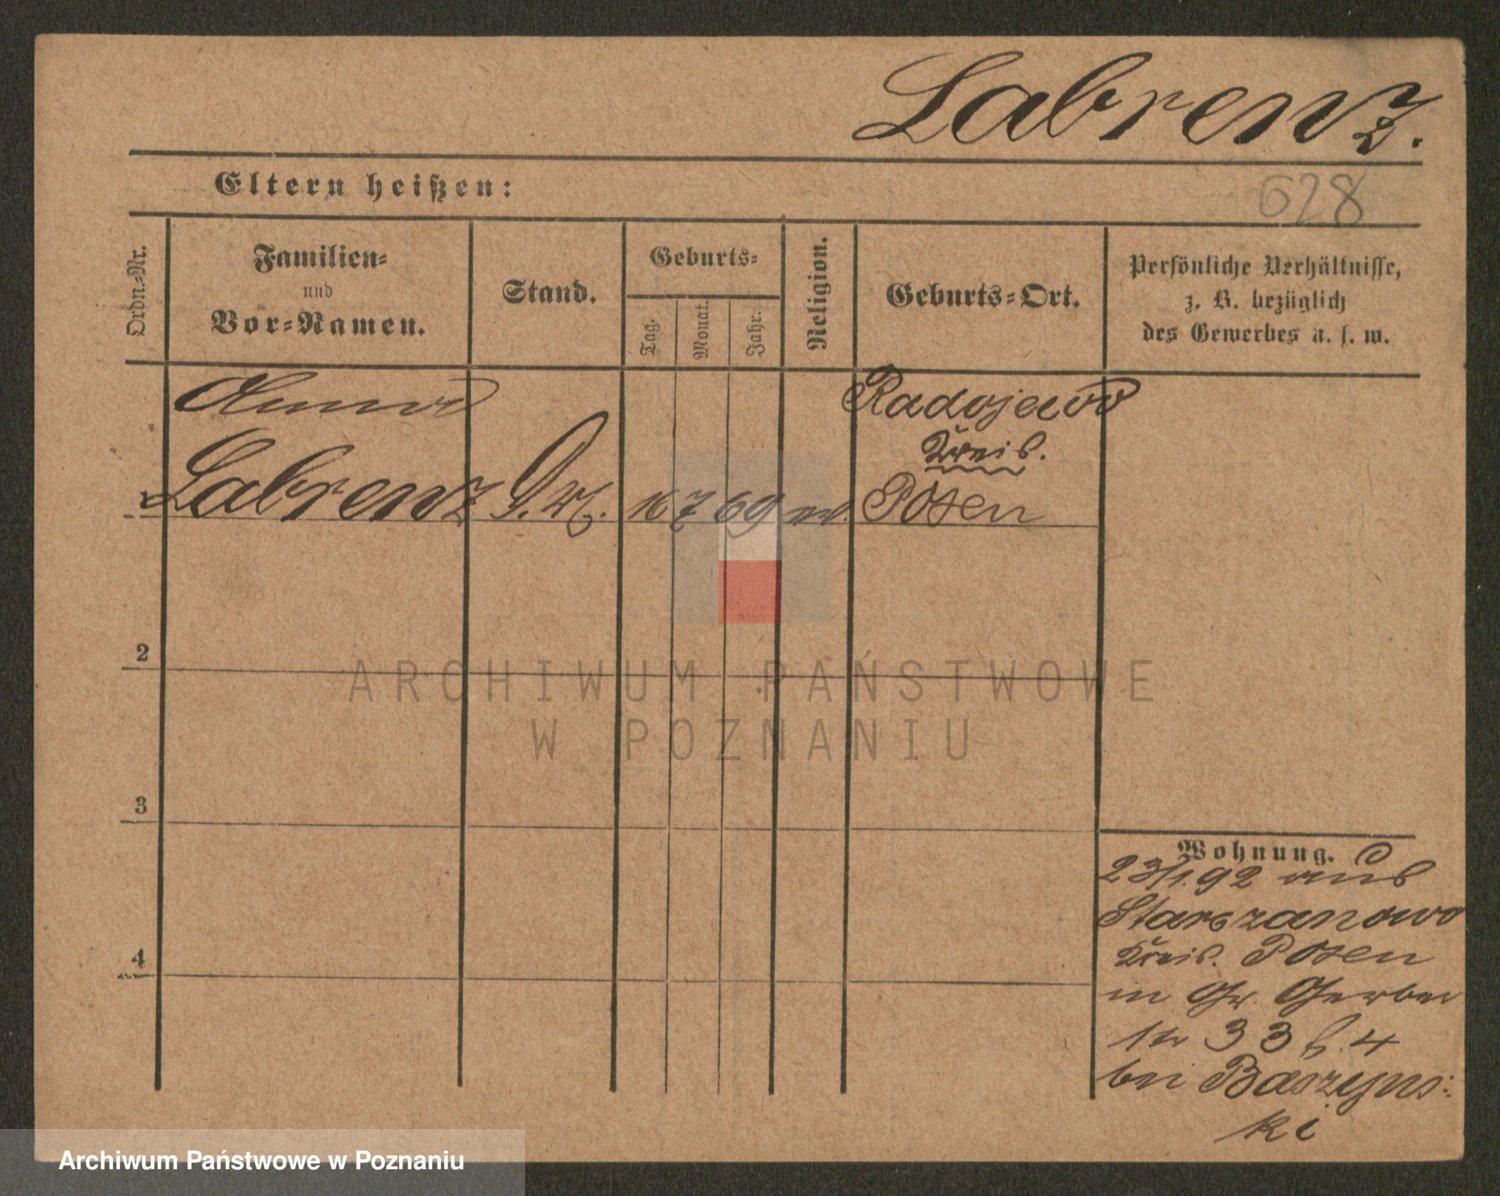 Labrenz.
Eltern heißen:
628
Ordn.-Nr.
Familien-
und
Vor-Namen.
Stand.
Geburts-
Tag.
Monat.
Jahr.
Religion.
Geburts-Ort.
Persönliche Verhältnisse,
z. B. bezüglich
des Gewerbes u. s. w.
Radojewo
Kreis.
1 Labrenz 16 7 69 ev. Posen
2
3
4
Wohnung.
23/1.92 aus
Starczanowo
Kreis. Posen
in Gr. Gerber
str 33 h. 4
bei Baszyns-
ki
ARCHIWUM PAŃSTWOWE
W POZNANIU
Archiwum Państwowe w Poznaniu